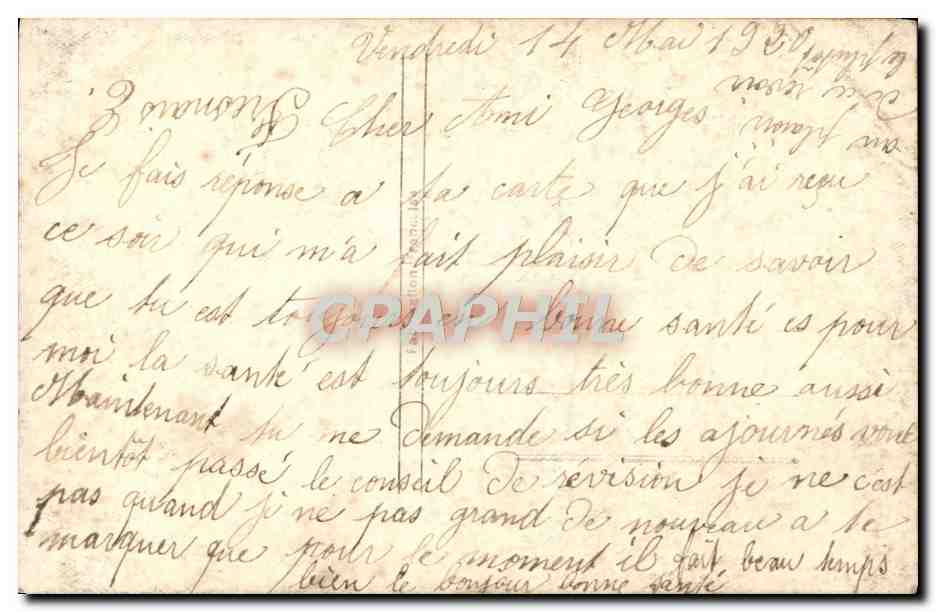 Vendredi 14 Mai 1920
Cher Ami Georges
Je fais réponse a ta carte que j'ai reçu
ce soir qui m'a fait plaisir de savoir
que tu est toujours en bonne santé es pour
moi la santé est toujours très bonne aussi
Maintenant tu me demande si les ajournés vont
bientot passé le conseil de révision je ne c'est
pas quand je ne pas grand de nouveau a te
marquer que pour le moment il fait beau temps
bien le bonjour bonne santé
au plaisir
de te revoir
le plutôt
Fabrication Française
CPAPHIL